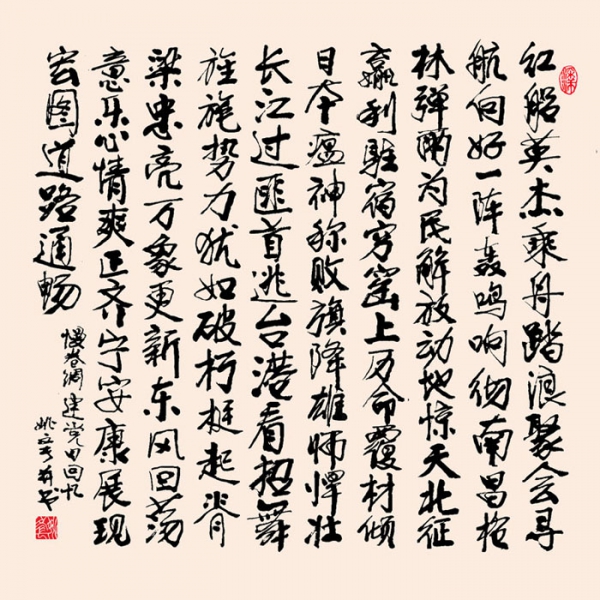 红船英杰乘舟踏浪聚会寻
航向好一阵轰鸣响彻南昌枪
林弹雨为民解放动地惊天北征
赢利驻宿穷窑上万命覆材倾
日本瘟神称败旗降雄师悍壮
长江过匪首逃台港看招舞
旌旄势力犹如破朽挺起脊
梁忠亮万象更新东风回荡
意乐心情爽正齐宁安康展现
宏图道路通畅
慢卷绸 建党回忆
姚书